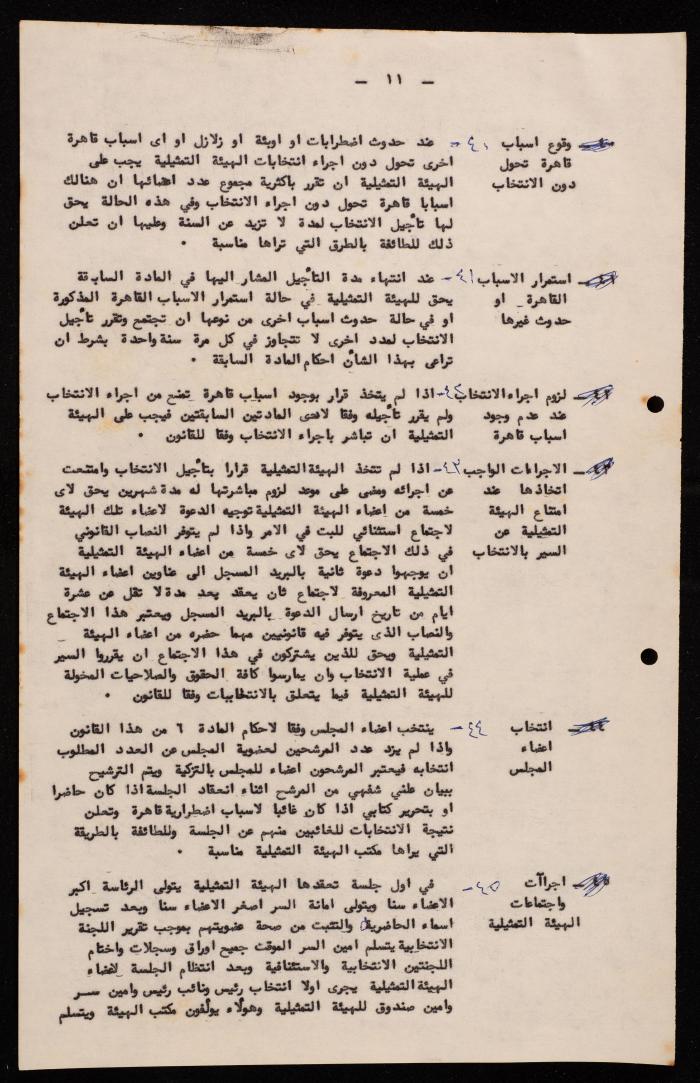 — ١١ —
وقوع اسباب ٤٠- عند حدوث اضطرابات او اوبئة او زلازل او اى اسباب قاهرة
قاهرة تحول اخرى تحول دون اجراء انتخابات الهيئة التمثيلية يجب على
دون الانتخاب الهيئة التمثيلية ان تقرر باكثرية مجموع عدد اعضائها ان هنالك
اسبابا قاهرة تحول دون اجراء الانتخاب وفي هذه الحالة يحق
لها تأجيل الانتخاب لمدة لا تزيد عن السنة وعليها ان تعلن
ذلك للطائفة بالطرق التي تراها مناسبة .
استمرار الاسباب ٤١- عند انتهاء مدة التأجيل المشار اليها في المادة السابقة
القاهرة او يحق للهيئة التمثيلية في حالة استمرار الاسباب القاهرة المذكورة
حدوث غيرها او في حالة حدوث اسباب اخرى من نوعها ان تجتمع وتقرر تأجيل
الانتخاب لمدد اخرى لا تتجاوز في كل مرة سنة واحدة بشرط ان
تراعى بهذا الشأن احكام المادة السابقة .
لزوم اجراء الانتخاب ٤٢- اذا لم يتخذ قرار بوجود اسباب قاهرة تمنع من اجراء الانتخاب
عند عدم وجود ولم يقرر تأجيله وفقا لاحدى المادتين السابقتين فيجب على الهيئة
اسباب قاهرة التمثيلية ان تباشر باجراء الانتخاب وفقا للقانون .
الاجراءات الواجب ٤٣- اذا لم تتخذ الهيئة التمثيلية قرارا بتأجيل الانتخاب وامتنعت
اتخاذها عند عن اجرائه ومضى على موعد لزوم مباشرتها له مدة شهرين يحق لاى
امتناع الهيئة خمسة من اعضاء الهيئة التمثيلية توجيه الدعوة لاعضاء تلك الهيئة
التمثيلية عن لاجتماع استثنائي للبت في الامر واذا لم يتوفر النصاب القانوني
السير بالانتخاب في ذلك الاجتماع يحق لاى خمسة من اعضاء الهيئة التمثيلية
ان يوجهوا دعوة ثانية بالبريد المسجل الى عناوين اعضاء الهيئة
التمثيلية المعروفة لاجتماع ثان يعقد بعد مدة لا تقل عن عشرة
ايام من تاريخ ارسال الدعوة بالبريد المسجل ويعتبر هذا الاجتماع
والنصاب الذى يتوفر فيه قانونيين مهما حضره من اعضاء الهيئة
التمثيلية ويحق للذين يشتركون في هذا الاجتماع ان يقرروا السير
في عملية الانتخاب وان يمارسوا كافة الحقوق والصلاحيات المخولة
للهيئة التمثيلية فيما يتعلق بالانتخابات وفقا للقانون .
انتخاب ٤٤- ينتخب اعضاء المجلس وفقا لاحكام المادة ٦ من هذا القانون
اعضاء واذا لم يزد عدد المرشحين لعضوية المجلس عن العدد المطلوب
المجلس انتخابه فيعتبر المرشحون اعضاء للمجلس بالتزكية ويتم الترشيح
ببيان علني شفهي من المرشح اثناء انعقاد الجلسة اذا كان حاضرا
او بتحرير كتابي اذا كان غائبا لاسباب اضطرارية قاهرة وتعلن
نتيجة الانتخابات للغائبين منهم عن الجلسة وللطائفة بالطريقة
التي يراها مكتب الهيئة التمثيلية مناسبة .
اجراآت ٤٥- في اول جلسة تعقدها الهيئة التمثيلية يتولى الرئاسة اكبر
واجتماعات الاعضاء سنا ويتولى امانة السر اصغر الاعضاء سنا وبعد تسجيل
الهيئة التمثيلية اسماء الحاضرين والتثبت من صحة عضويتهم بموجب تقرير اللجنة
الانتخابية يتسلم امين السر الموقت جميع اوراق وسجلات واختام
اللجنتين الانتخابية والاستئنافية وبعد انتظام الجلسة لاعضاء
الهيئة التمثيلية يجرى اولا انتخاب رئيس ونائب رئيس وامين سر
وامين صندوق للهيئة التمثيلية وهؤلاء يولفون مكتب الهيئة ويتسلم